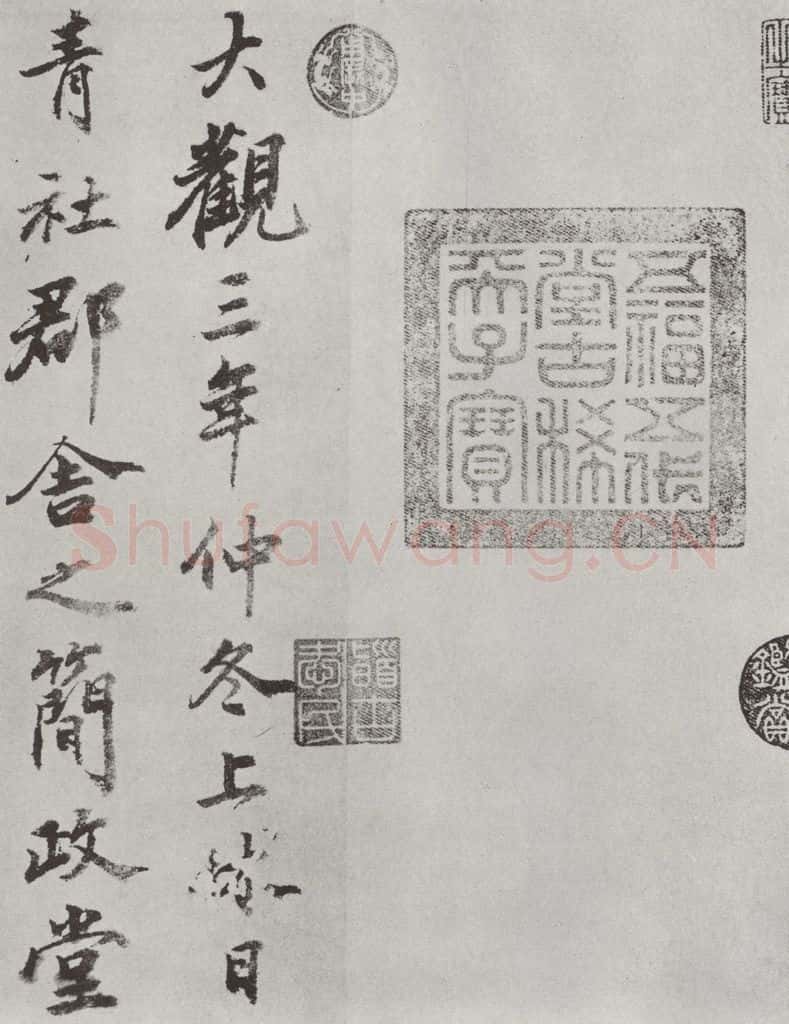 之寶
五福五代
堂古稀
天子寶
大觀三年仲冬上日
青社郡舍之簡政堂
Shufawang.CN